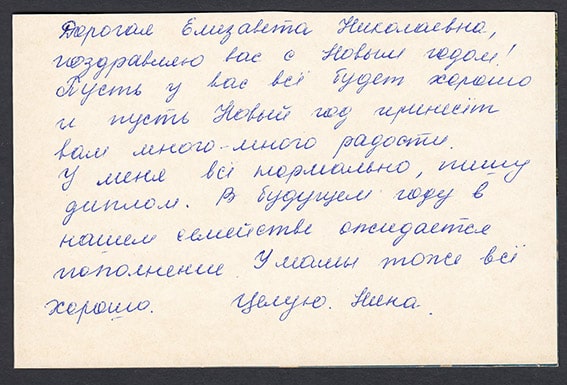 Дорогая Елизавета Николаевна,
поздравляю вас с Новым годом!
Пусть у вас всё будет хорошо
и пусть Новый год принесёт
вам много-много радости.
У меня всё нормально, пишу
диплом. В будущем году в
нашем семействе ожидается
пополнение. У мамы тоже всё
хорошо. Целую. Нина.